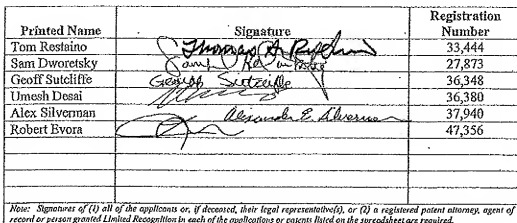 Printed Name Signature Registration Number
Tom Restaino 33,444
Sam Dworetsky 27,873
Geoff Sutcliffe George Sutcliffe 36,348
Umesh Desai 36,380
Alex Silverman Alexander E. Silverman 37,940
Robert Evora 47,356
Note: Signatures of (1) all of the applicants or, if deceased, their legal representative(s), or (2) a registered patent attorney, agent of
record or person granted Limited Recognition in each of the applications or patents listed on the spreadsheet are required.